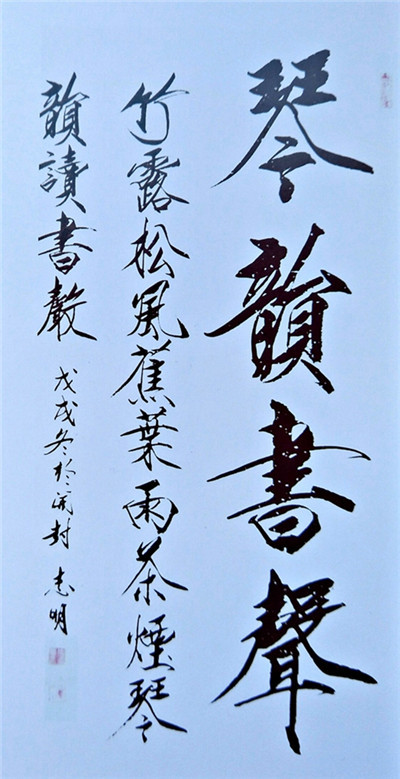 琴韻書聲
竹露松風蕉葉雨茶煙琴
韻讀書聲
戊戌冬於開封 志明